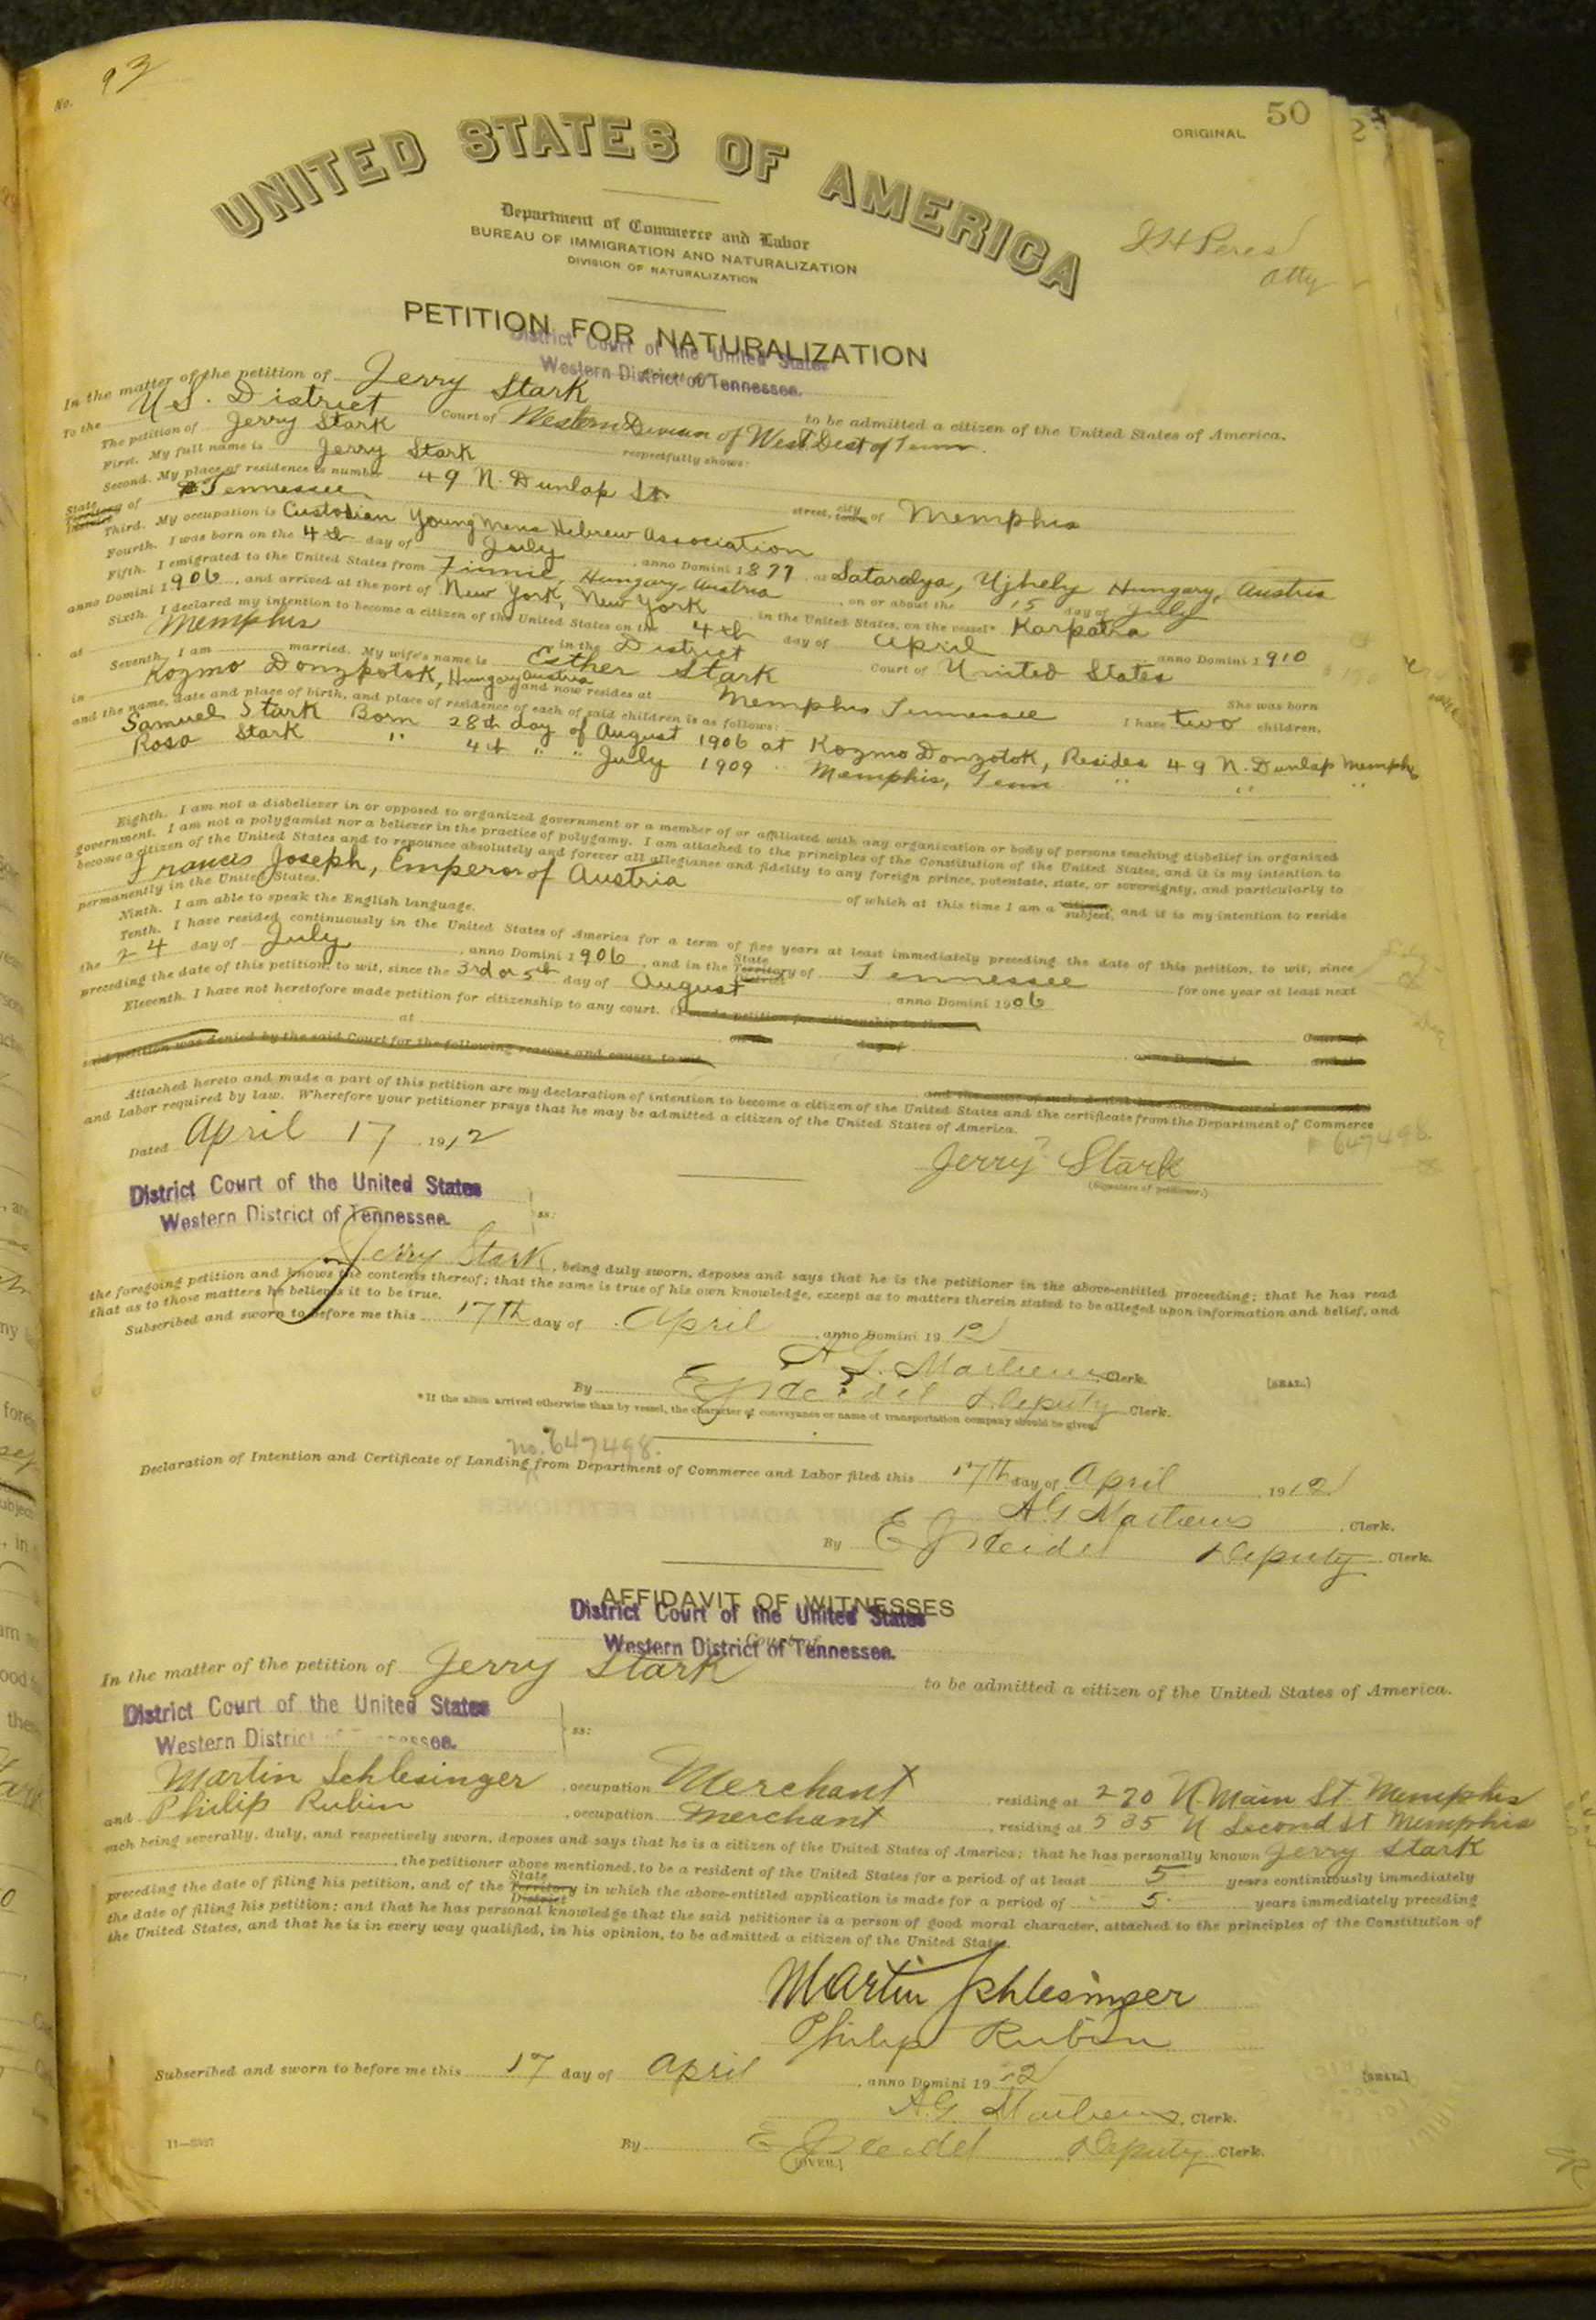 No. 93
ORIGINAL 50
UNITED STATES OF AMERICA
Department of Commerce and Labor
BUREAU OF IMMIGRATION AND NATURALIZATION
DIVISION OF NATURALIZATION
Atty
PETITION FOR NATURALIZATION
District Court of the United States
Western District of Tennessee.
In the matter of the petition of Jerry Stark to be admitted a citizen of the United States of America.
To the U.S. District Court of Western Division of West Dist of Tenn.
The petition of Jerry Stark respectfully shows:
First. My full name is Jerry Stark
Second. My place of residence is number 49 N. Dunlap St. street, city of Memphis
State Territory District of Tennessee
Third. My occupation is Custodian Young Mens Hebrew Association
Fourth. I was born on the 4th day of July, anno Domini 1877, at Sataralya, Ujhely Hungary, Austria
Fifth. I emigrated to the United States from Fiume, Hungary, Austria, on or about the 15 day of July
anno Domini 1906, and arrived at the port of New York, New York in the United States, on the vessel* Karpatra
Sixth. I declared my intention to become a citizen of the United States on the 4th day of April anno Domini 1910
at Memphis in the District Court of United States
Seventh. I am married. My wife's name is Esther Stark She was born
in Kozmo Donzpotok, Hungary Austria and now resides at Memphis Tennessee I have two children,
and the name, date and place of birth, and place of residence of each of said children is as follows:
Samuel Stark Born 28th day of August 1906 at Kozmo Donzotok, Resides 49 N. Dunlap Memphs
Rosa Stark " 4th " " July 1909 " Memphis, Tenn " " "
Eighth. I am not a disbeliever in or opposed to organized government or a member of or affiliated with any organization or body of persons teaching disbelief in organized
government. I am not a polygamist nor a believer in the practice of polygamy. I am attached to the principles of the Constitution of the United States, and it is my intention to
become a citizen of the United States and to renounce absolutely and forever all allegiance and fidelity to any foreign prince, potentate, state, or sovereignty, and particularly to
Francis Joseph, Emperor of Austria of which at this time I am a citizen subject, and it is my intention to reside
permanently in the United States.
Ninth. I am able to speak the English language.
Tenth. I have resided continuously in the United States of America for a term of five years at least immediately preceding the date of this petition, to wit, since
the 24 day of July, anno Domini 1906, and in the State Territory District of Tennessee for one year at least next
preceding the date of this petition, to wit, since the 3rd or 5th day of August, anno Domini 1906
Eleventh. I have not heretofore made petition for citizenship to any court. (I made petition for citizenship to the Court of
at on the day of anno Domini 1 and the
said petition was denied by the said Court for the following reasons and causes, to wit,
and the cause of such denial has since been cured or removed.)
Attached hereto and made a part of this petition are my declaration of intention to become a citizen of the United States and the certificate from the Department of Commerce
and Labor required by law. Wherefore your petitioner prays that he may be admitted a citizen of the United States of America.
Dated April 17, 1912
647498
Jerry Stark
(Signature of petitioner.)
District Court of the United States
Western District of Tennessee. ss:
Jerry Stark, being duly sworn, deposes and says that he is the petitioner in the above-entitled proceeding; that he has read
the foregoing petition and knows the contents thereof; that the same is true of his own knowledge, except as to matters therein stated to be alleged upon information and belief, and
that as to those matters he believes it to be true.
Subscribed and sworn to before me this 17th day of April, anno Domini 1912
A G. Mathews Clerk. [SEAL.]
By Deputy Clerk.
*If the alien arrived otherwise than by vessel, the character of conveyance or name of transportation company should be given.
no. 647498.
Declaration of Intention and Certificate of Landing from Department of Commerce and Labor filed this 17th day of April, 1912
A G Mathews, Clerk.
By Deputy Clerk.
AFFIDAVIT OF WITNESSES
District Court of the United States
Court of
Western District of Tennessee.
In the matter of the petition of Jerry Stark to be admitted a citizen of the United States of America.
District Court of the United States
Western District of Tennessee. ss:
Martin Schlesinger, occupation Merchant, residing at 270 N. Main St. Memphis
and Philip Rubin, occupation Merchant, residing at 535 N Second St Memphis
each being severally, duly, and respectively sworn, deposes and says that he is a citizen of the United States of America; that he has personally known Jerry Stark
, the petitioner above mentioned, to be a resident of the United States for a period of at least 5 years continuously immediately
preceding the date of filing his petition, and of the State Territory District in which the above-entitled application is made for a period of 5 years immediately preceding
the date of filing his petition; and that he has personal knowledge that the said petitioner is a person of good moral character, attached to the principles of the Constitution of
the United States, and that he is in every way qualified, in his opinion, to be admitted a citizen of the United States.
Martin Schlesinger
Philip Rubin
Subscribed and sworn to before me this 17 day of April, anno Domini 1912 [SEAL.]
A.G. Mathews, Clerk.
By Deputy Clerk.
11—2527
(OVER.)